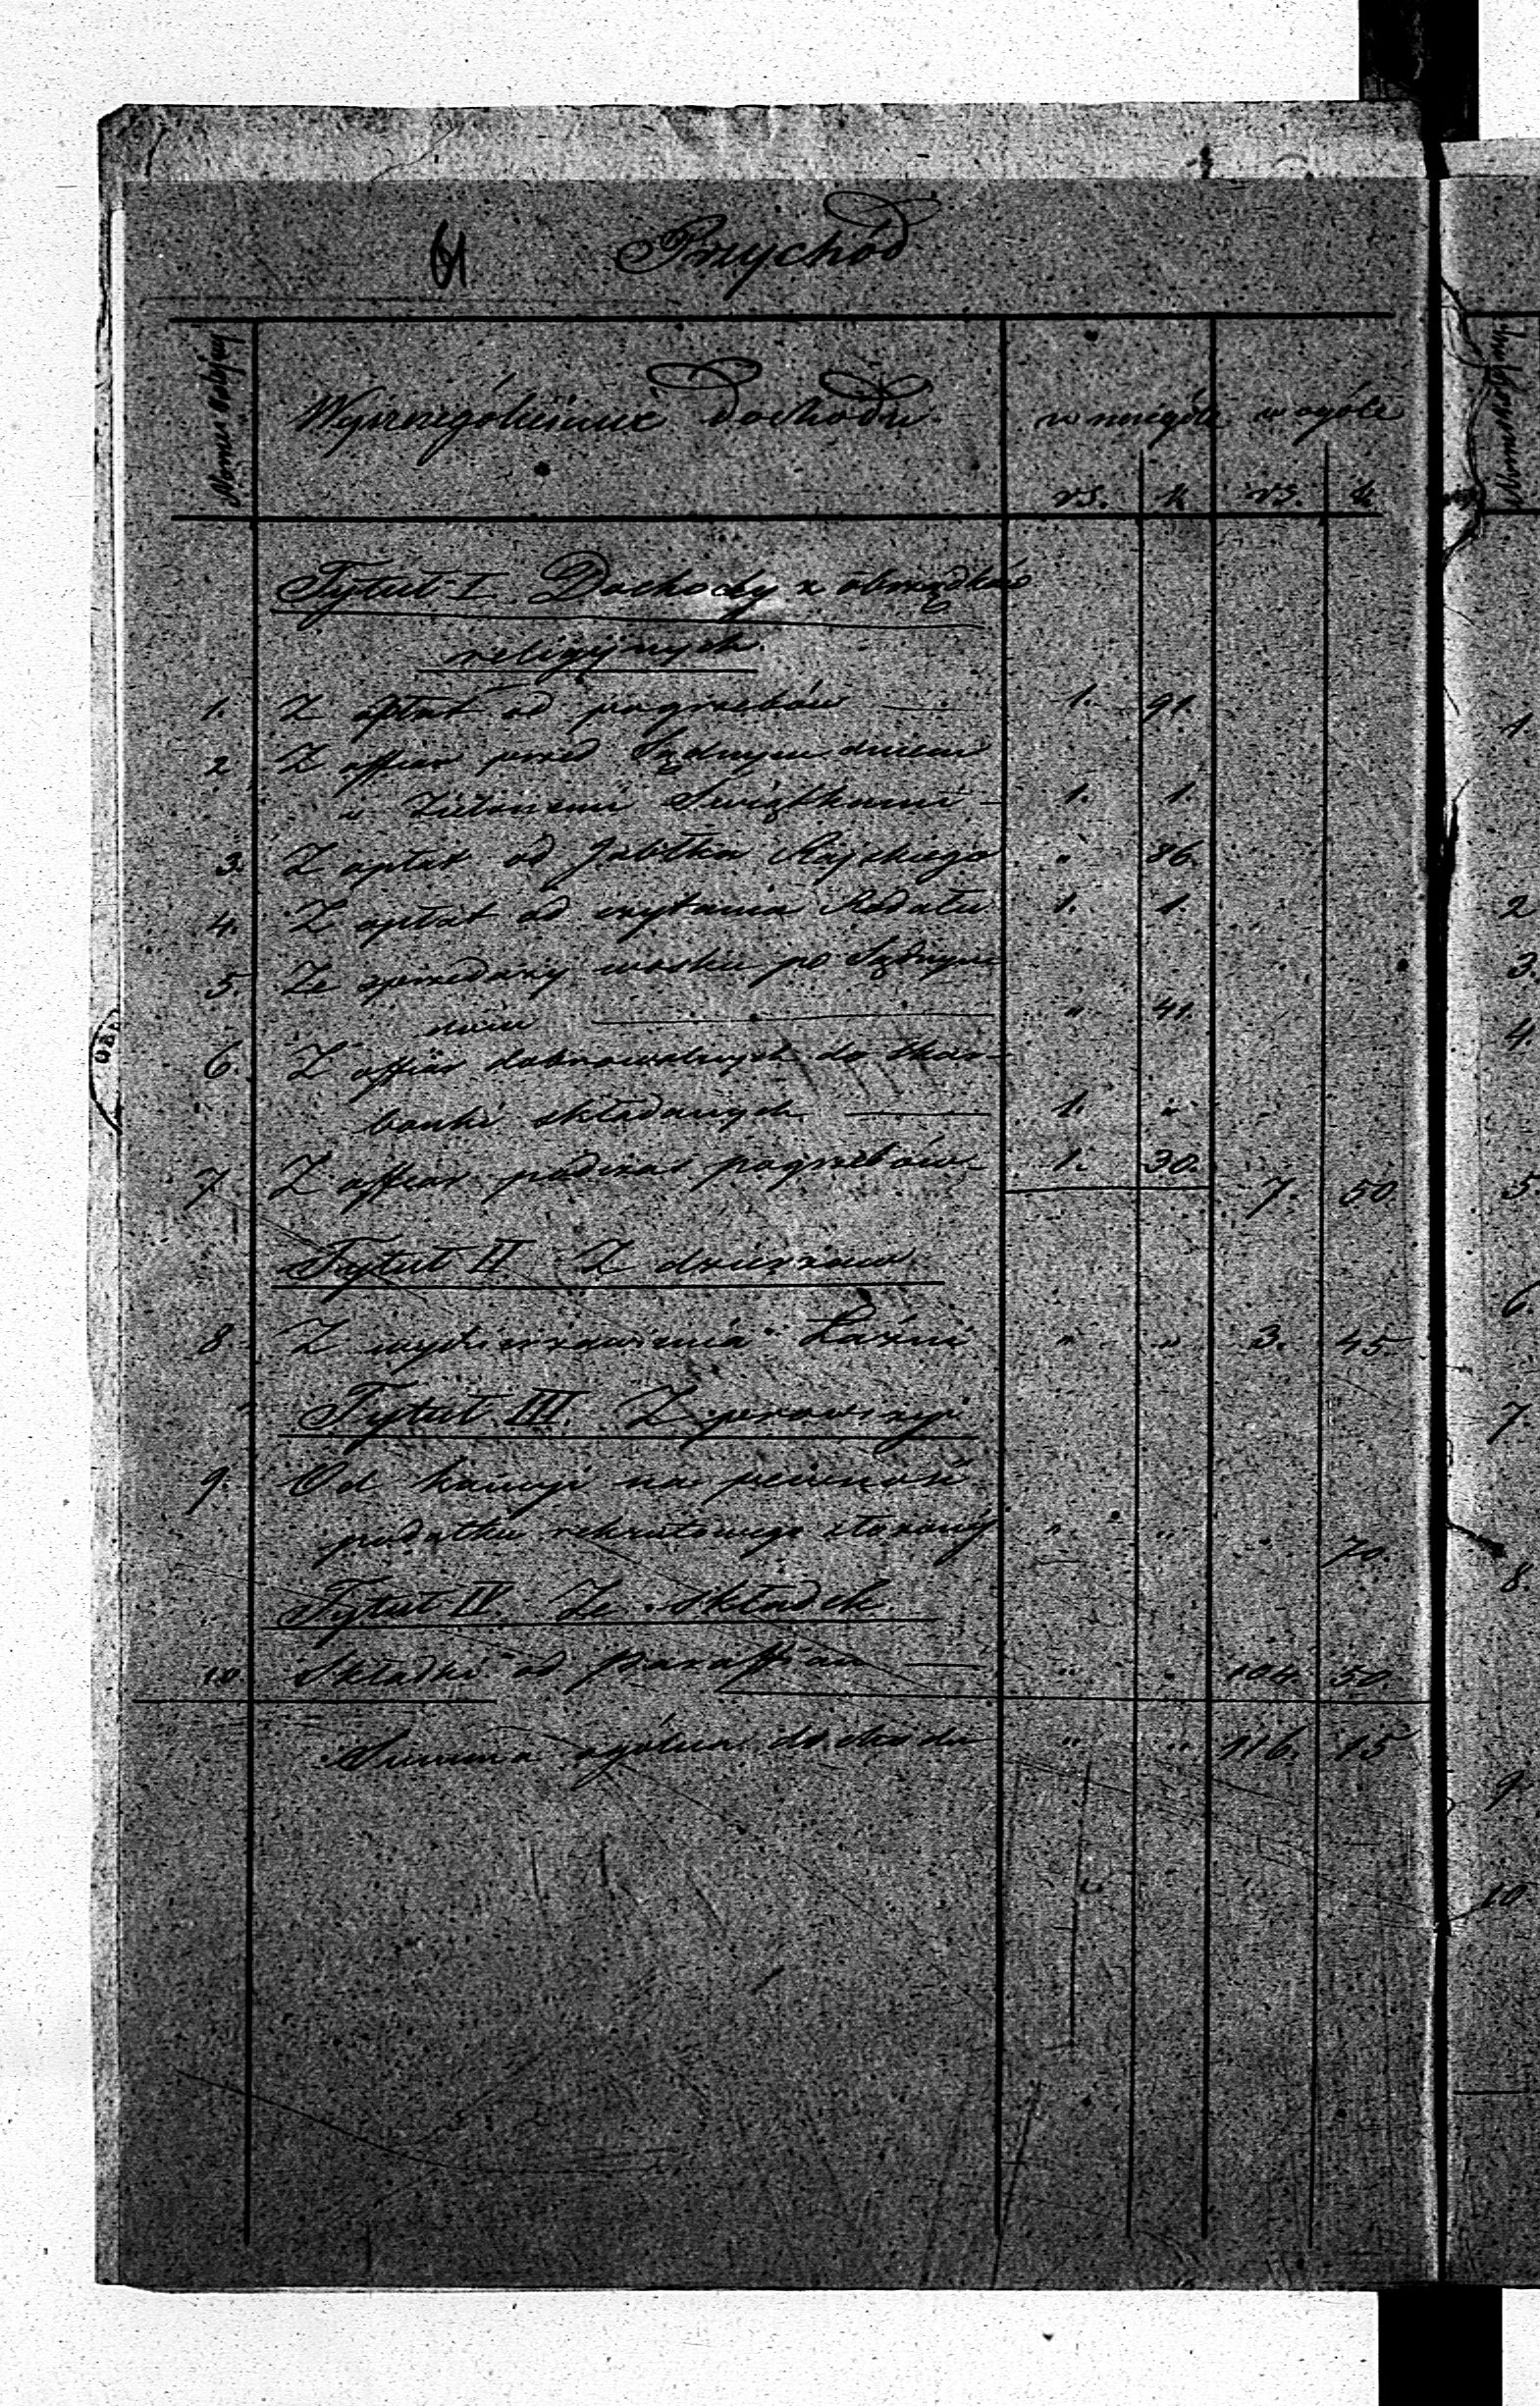 61 Przychód
Numer pozycyi
Wyszczególnienie Dochodu w szczególe w ogóle
rs. k rs. k
Tytuł I. Dochody z obrządków
religijnych.
1. Z opłat od pogrzebów — 1. 91.
2 Z offiar przed Sądnym dniem
i Zielonemi Świątkami — 1. 1.
3. Z opłat od Jabłka Rajskiego „ 86.
4. Z opłat od czytania Rodału 1. 1.
5. Ze sprzedaży wosku po Sądnym
dniu — „ 41.
6. Z offiar dobrowolnych do skar-
bonki składanych — 1. „
7 Z offiar podczas pogrzebów — 1. 30. 7. 50
Tytuł II Z dzierżaw.
8. Z wydzierżawienia Łaźni „ „ 3. 45
Tytuł III. Z prowizyi
9. Od kaucyi na pewność
podatku rekrutowego złożonéj „ „ 70.
Tytuł IV. Ze składek
10 Składki od Paraffian — „ „ 104. 50
Summa ogólna dochodu „ „ 116. 15
1.
2
3.
4.
5
6
7.
8.
9
10